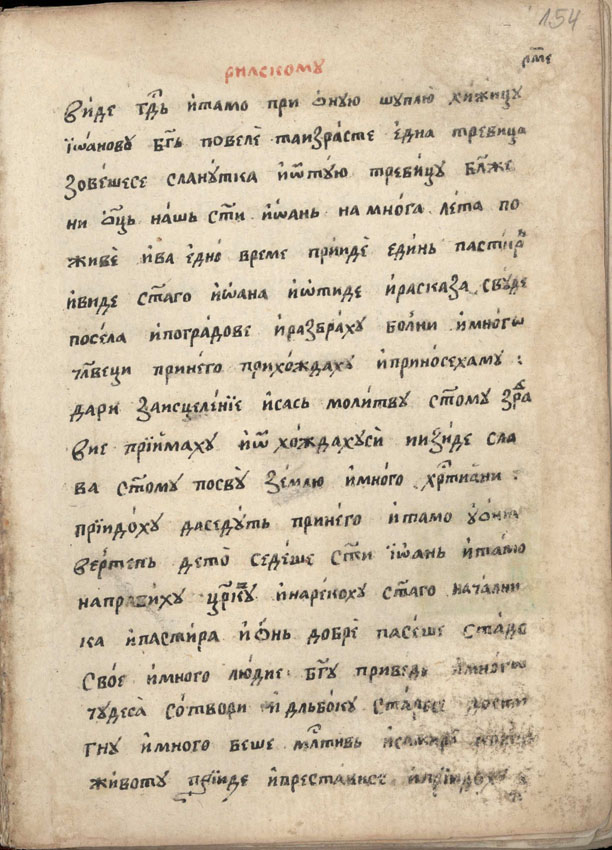 154
рн҃е
рилскому
виде гдⷭь и҆тамо при ѻ҆ную шуплю хижицу
їѡ҆анову бг҃ь повелѐ таизра́сте є҆дна требица
зове́шесе слану́тка и҆ѿту́ю треби́цу бл҃же
ни ѻ҆ц҃ь на́шь ст҃и и҆ѡ҆ань на мно́га ле́та по
живѐ и҆ва є҆дно̀ време прїи́де є҆динь пасти́рь
и҆виде ст҃аго и҆ѡ҆ана и҆ѿтиде и҆расказа свꙋде
посе́ла и҆погра́дове и҆разбра́ху бо́лни и҆мно́гѡ
чл҃веци прине́го прихо́ждаху и҆прино́сехаму :
да́ри заисцеле́нїе и҆сась моли́тву ст҃ому здра
вие прїи́маху и҆ѿ хо́ждахусѝ и҆изи́де сла
ва ст҃ому посвꙋ̀ зе́млю и҆мно́го хрⷭ҇тиани :
прїидо́ху даседу́ть прине́го и҆тамо у҆ѻ҆ниа
вѐртепь дето̀ седе́ше ст҃и їѡ҆ань и҆та́мо
направиху црⷦ҇ву и҆наре́коху ст҃аго нача́лни
ка и҆па́стира и҆ѻ҆нь добрѐ пасе́ше ста́до
сво́е и҆мно́го лю́дие бг҃у приведе и҆мно́гѡ
чудеса̀ со́твори и҆ дльбоку ста́рось дости
гну и҆много беше мл҃тивь
живо́ту прїи́де и҆преста́висе и҆прїидо́ха